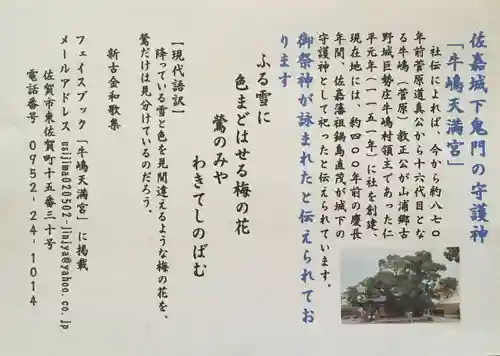 佐嘉城下鬼門の守護神
「牛嶋天満宮」
社伝によれば、今から約八七〇
年前菅原道真公から十六代目とな
る牛嶋(菅原)教正公が山浦郷古
野城巨勢庄牛嶋村領主であった仁
平元年(一一五一年)に社を創建、
現在地には、約四〇〇年前の慶長
年間、佐嘉藩祖鍋島直茂が城下の
守護神として祀ったと伝えられています。
御祭神が詠まれたと伝えられてお
ります
ふる雪に
色まどはせる梅の花
鶯のみや
わきてしのばむ
【現代語訳】
降っている雪と色を見間違えるような梅の花を、
鶯だけは見分けているのだろう。
新古今和歌集
フェイスブック「牛嶋天満宮」に掲載
メールアドレス usijima020502-jinjya@yahoo.co.jp
佐賀市東佐賀町十五番三十号
電話番号 0952-24-1014